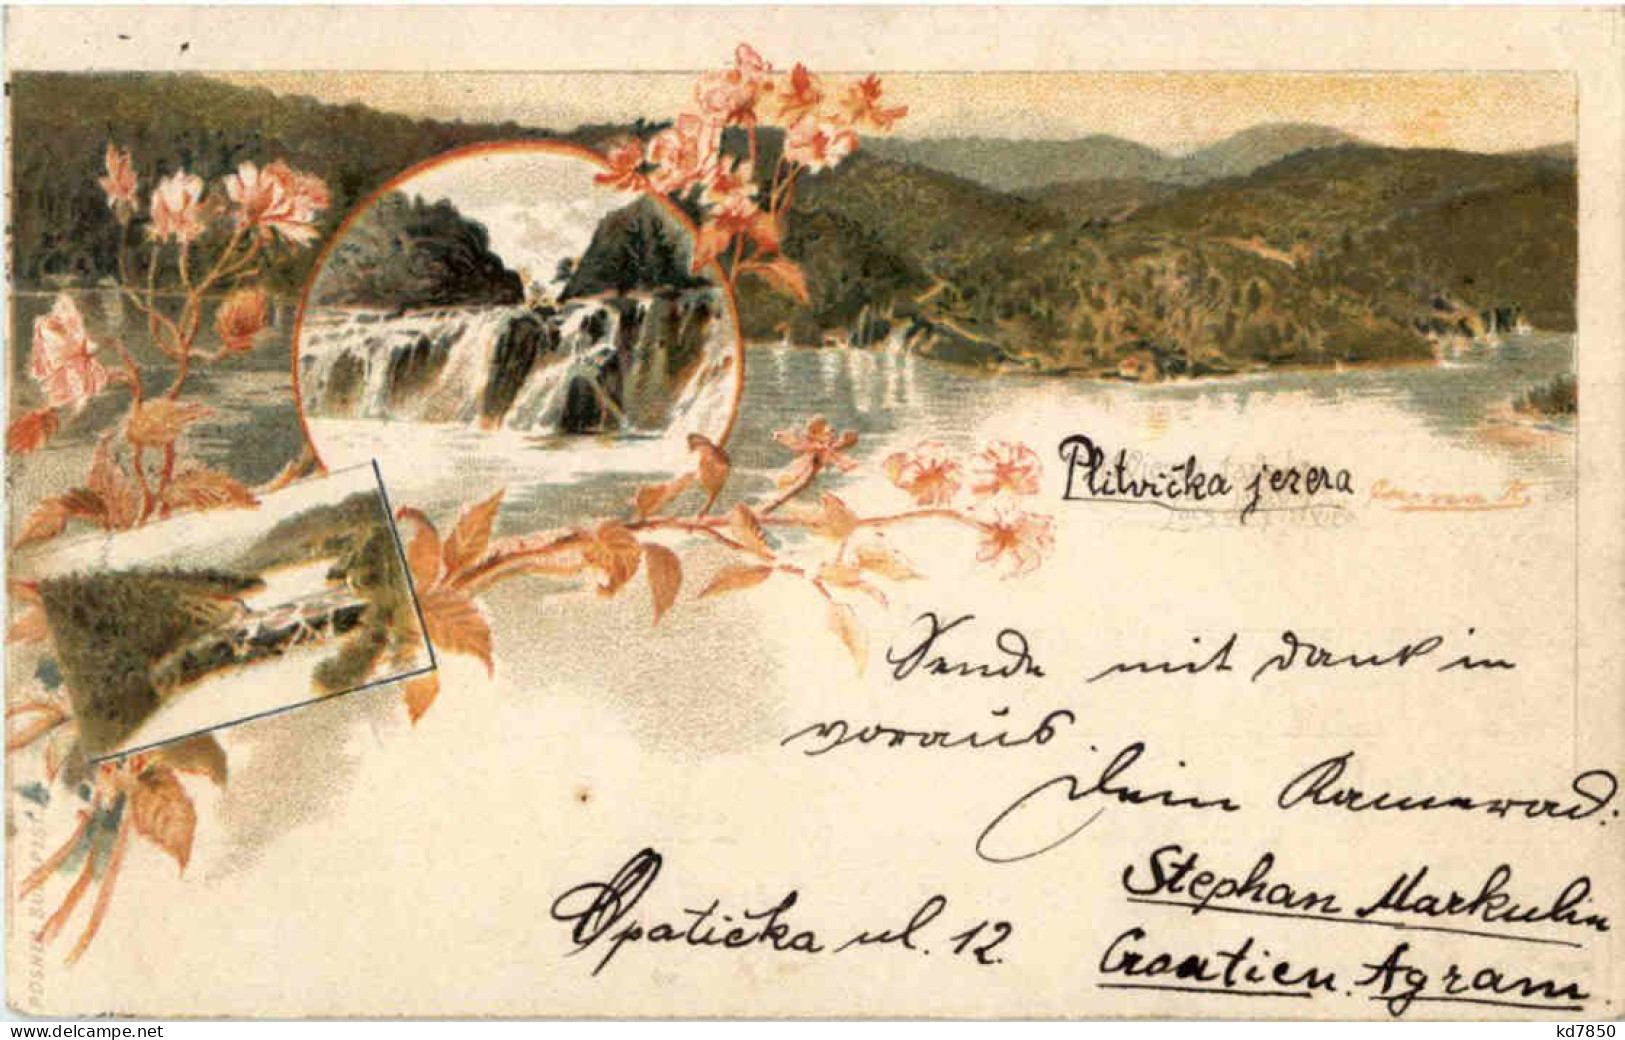 Plitvička jezera
Sende mit Dank in
voraus.
Dein Kamerad:
Stephan Markulin
Opatička ul. 12.
Croatien. Agram.
POSNER BUDAPEST
delcampe.net
kd7850